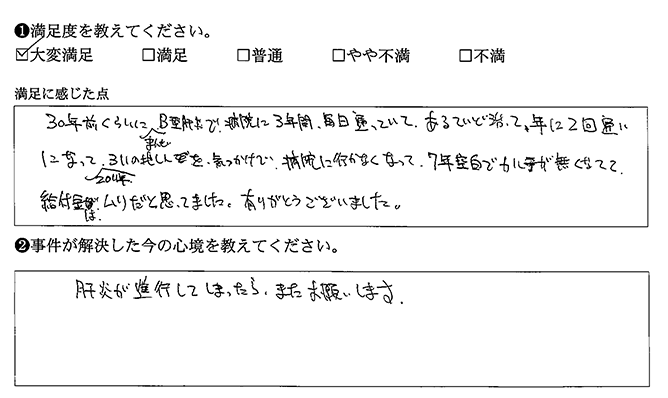 ❶満足度を教えてください。
☑大変満足 □満足 □普通 □やや不満 □不満
満足に感じた点
30年前くらいに、B型肝炎で、病院に3年間、毎日通っていて、あるていど治って、年に2回通い
まんせい
になって、3.11の地しんぜを、気っかけで、病院に行かなくなって、7年空白でカルテが無くなてて
2011年
給付金は、ムリだと思ってました。有りがとうございました。
❷事件が解決した今の心境を教えてください。
肝炎が進行してしまったら、またお願いします。